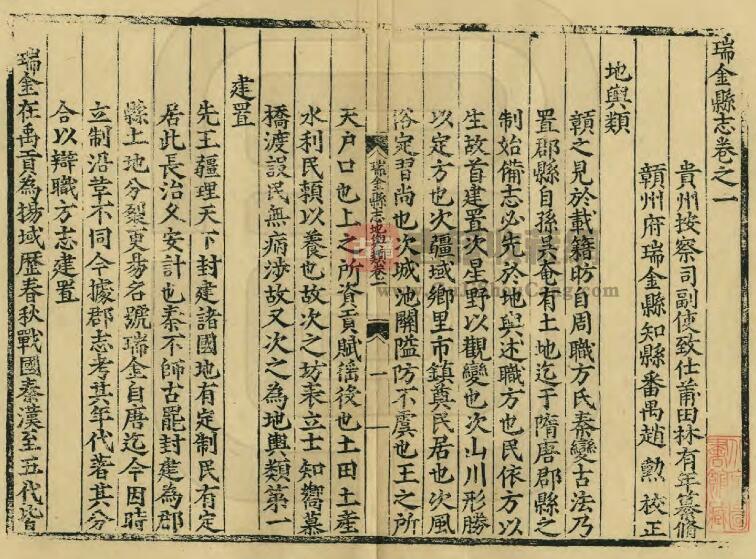 瑞金縣志卷之一
貴州按察司副使致仕莆田林有年纂脩
贛州府瑞金縣知縣番禺趙勲校正
地輿類
贛之見於載籍昉自周職方氏秦變古法乃
置郡縣自孫吳奄有土地迄于隋唐郡縣之
制始備志必先於地輿述職方也民依方以
生故首建置次星野以觀變也次山川形勝
以定方也次疆域鄉里市鎮奠民居也次風
俗定習尚也次城池關隘防不虞也王之所
瑞金縣志地輿類卷一
一
天戶口也上之所資貢賦徭役也土田土產
水利民頼以養也故次之坊表立士知嚮慕
橋渡設民無病涉故又次之為地輿類第一
建置
先王疆理天下封建諸國地有定制民有定
居此長治久安計也秦不師古罷封建為郡
縣土地分裂更易名號瑞金自唐迄今因時
立制沿革不同今據郡志考其年代著其分
合以辯職方志建置
瑞金在禹貢為揚域歷春秋戰國秦漢至五代皆